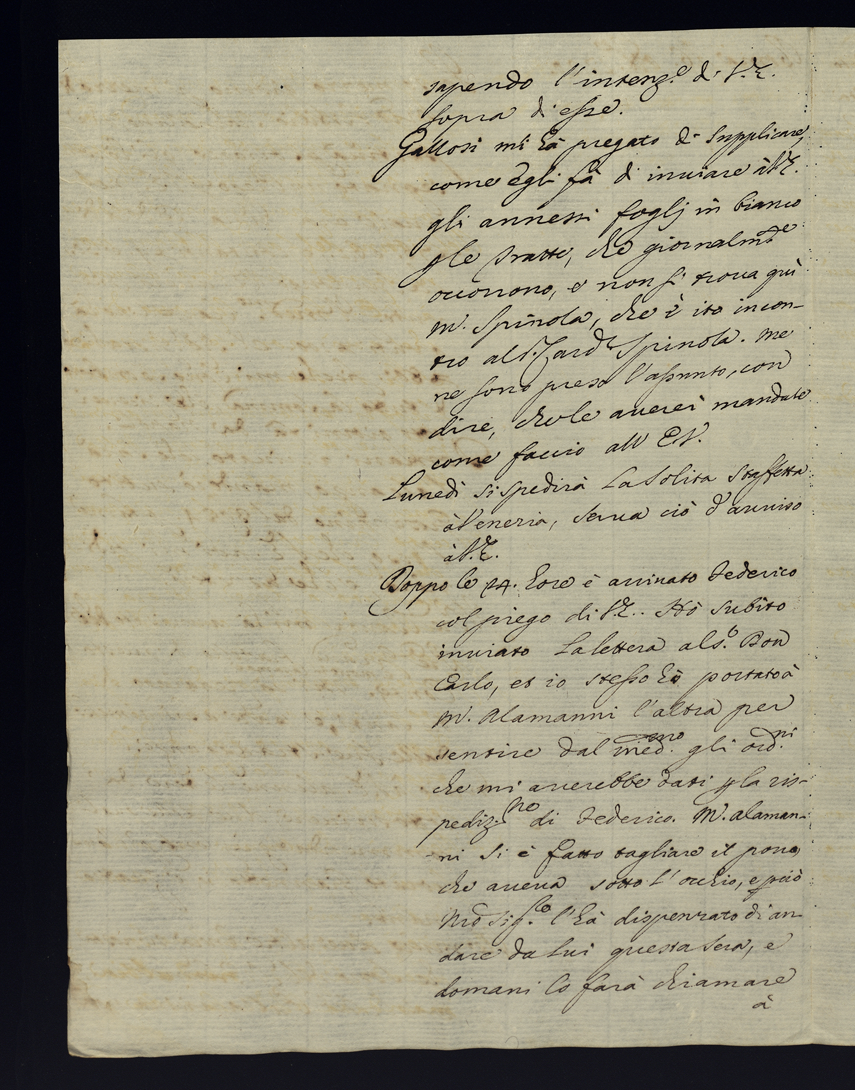 sapendo l'intenz.e di V.E.
sopra di esse.
Gallosi mi hà pregato di supplicare,
come egli fà di inviare à V.E.
gli annessi foglj in bianco
p le tratte, che giornalmte
occorrono, e non si trova quì
M.r Spinola, che è ito incon-
tro al S. Card.l Spinola. Me
ne sono preso l'assunto, con
dire, che le averei mandate
come faccio all' E.V.
Lunedì si spedirà la solita staffetta
à Venezia, serva ciò d'avviso
à V.E.
Doppo le 24. hore è arrivato Federico
col piego di V.E.. Hò subito
inviato la lettera al S.r Don
Carlo, et io stesso hò portato à
M.r Alamanni l'altra per
sentire dal med.mo gli ord.ni
che mi averebbe dati p la ris-
pediz.ne di Federico. M.r Alaman-
ni si è fatto tagliare il porro,
che aveva sotto l'occhio, e p ciò
l'hà dispensato di an-
dare da lui questa sera, e
domani lo farà chiamare
à